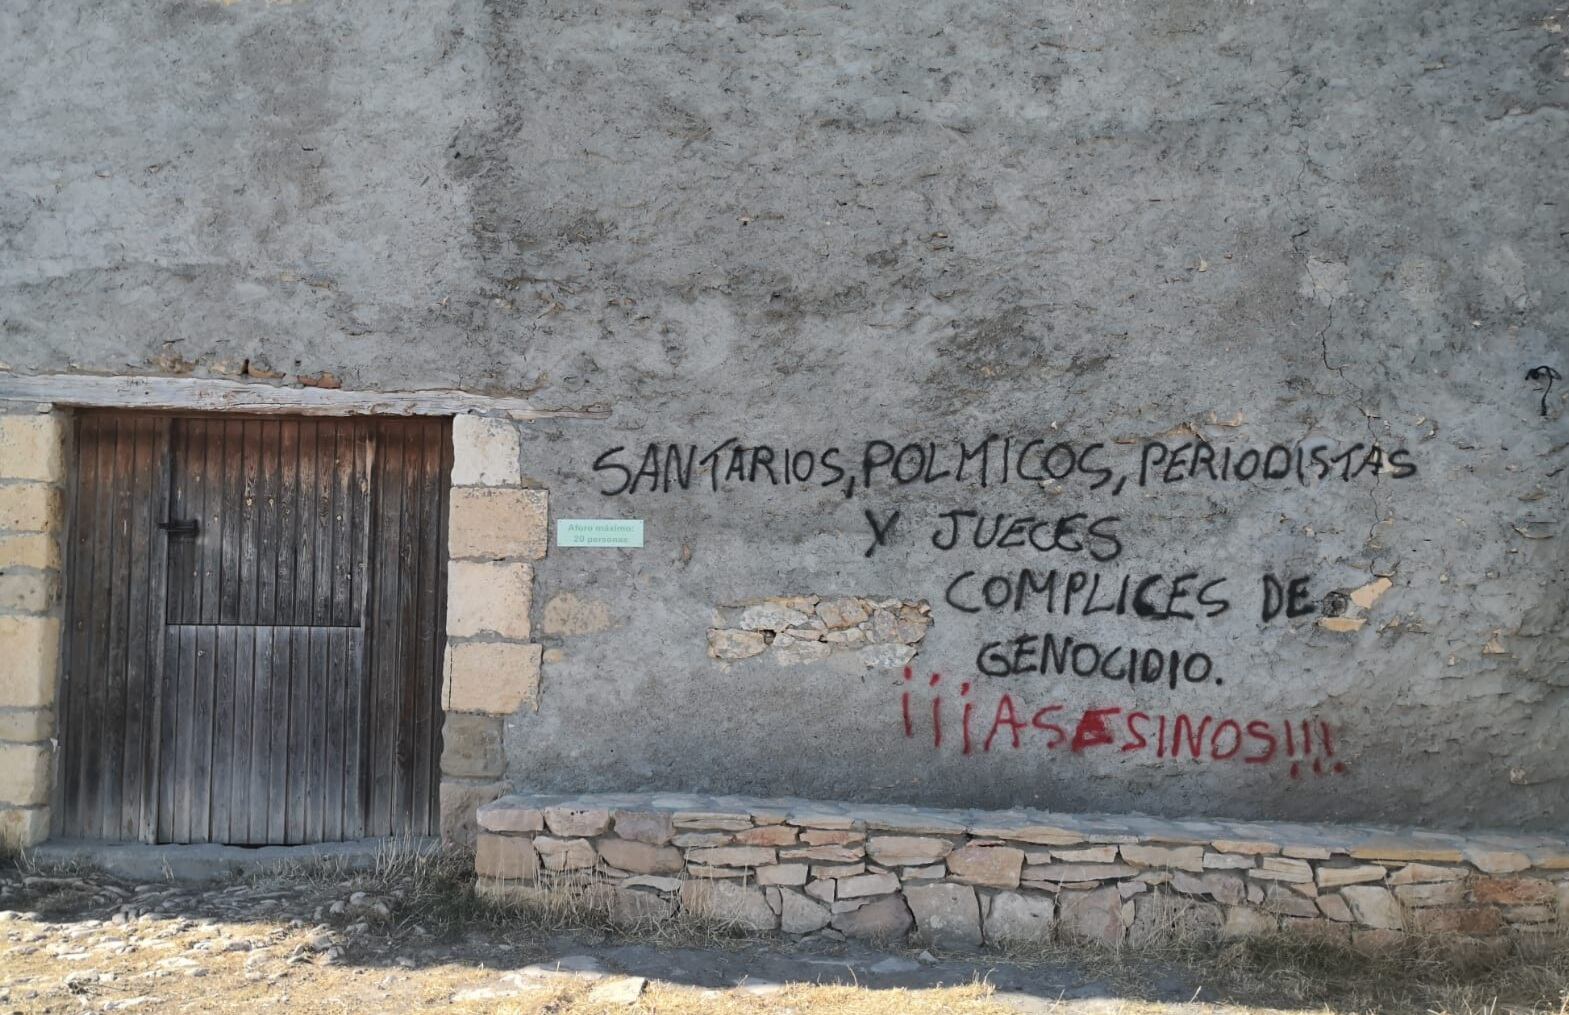 Aforo máximo:
20 personas
SANTARIOS, POLMICOS, PERIODISTAS
Y JUECES
COMPLICES DE
GENOCIDIO.
¡¡¡ASESINOS!!!